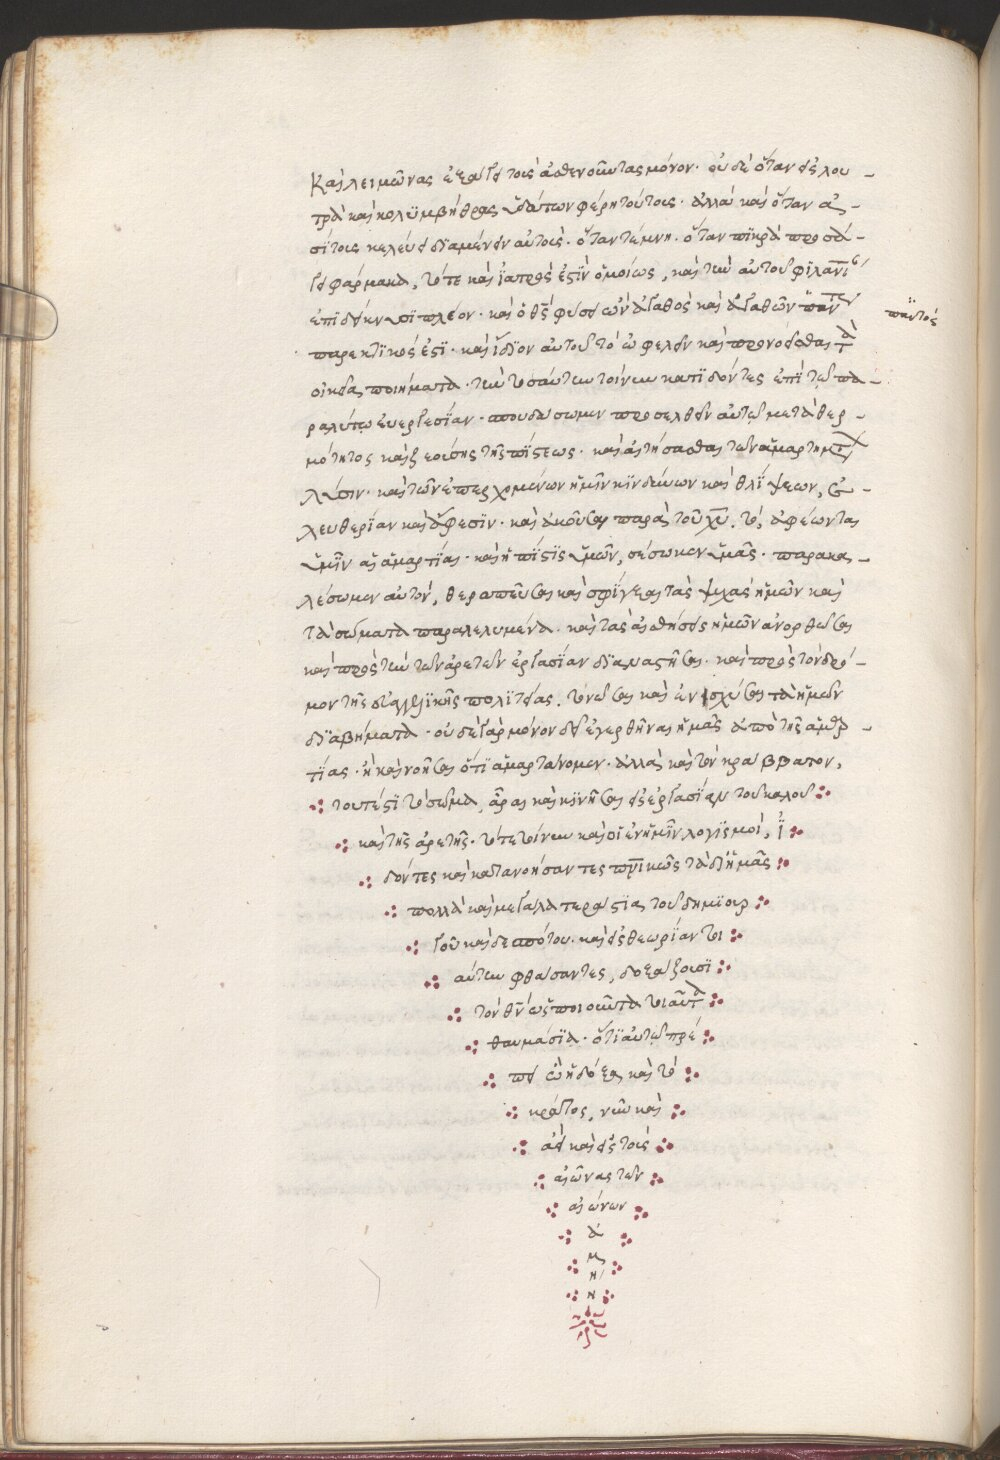 Καὶ λειμῶνας ἐξάγει τοὺς ἀσθενοῦντας μόνον· οὐδὲ ὅταν εἰς λου-
τρὰ καὶ κολυμβήθρας ὑδάτων φέρῃ τούτους· ἀλλὰ καὶ ὅταν ἀ-
σίτους κελεύει διαμένειν αὐτούς· ὅταν τέμνῃ· ὅταν πϊκρὰ προσά-
γει φάρμακα, τότε καὶ ϊατρός ἐστϊν ὁμοίως, καὶ τὴν αὐτοῦ φϊλαν
ἐπϊδείκνυσι πλέον· καὶ ὁ θς φύσει ὢν ἀγαθὸς καὶ ἀγαθῶν παντ
παντός
παρεκτϊκός ἐστϊ· καὶ ἴδϊον αὐτοῦ τὸ ὠφελεῖν καὶ προνοεῖσθαι τὰ
οἰκεῖα ποιήματα· τὴν τοσαύτην τοίνυν κατϊδόντες ἐπὶ τῷ πα-
ραλύτῳ εὐεργεσϊαν· σπουδάσωμεν προσελθεῖν αὐτῷ μετὰ θερ-
μότητος καὶ ζεούσης τῆς πίστεως· καὶ αἰτήσασθαι τῶν ἁμαρτημτ
λύσιν· καὶ τῶν ἐπερχομένων ἡμῖν κϊνδύνων καὶ θλίψεων, ἐ-
λευθερίαν καὶ ἄφεσϊν· καὶ ἀκοῦσαι παρὰ τοῦ χυ, τό, ἀφέωνται
ὑμῖν αἱ ἁμαρτίαι· καὶ ἡ πίστϊς ὑμῶν, σέσωκεν ὑμᾶς· παρακα-
λέσωμεν αὐτόν, θεραπεῦσαι καὶ σφίγξαι τὰς ψυχὰς ἡμῶν καὶ
τὰ σώματα παραλελυμένα· καὶ τὰς αἰσθήσεις ἡμῶν ἀνορθῶσαι
καὶ πρὸς τὴν τῶν ἀρετῶν ἐργασίαν διαναστῆσαι· καὶ πρὸς τὸν δρό-
μον τῆς εὐαγγελϊκῆς πολϊτείας, τονῶσαι καὶ ἐνισχύσαι τὰ ἡμῶν
δϊαβήματα· οὐδὲ γὰρ μόνον δεῖ ἐγερθῆναι ἡμᾶς ἀπὸ τῆς ἁμαρ-
τίας· ἢ καὶ νοῆσαι ὅτϊ ἁμαρτάνομεν· ἀλλὰ καὶ τὸν κράββατον,
τουτέστϊ τὸ σῶμα, ἆραι καὶ κϊνῆσαι εἰς ἐργασίαν τοῦ καλοῦ
καὶ τῆς ἀρετῆς· τότε τοίνυν καὶ οἱ ἐν ἡμῖν λογϊσμοὶ, ἰ
δόντες καὶ κατανοήσαντες πνϊκῶς τὰ δι' ἡμᾶς
πολλὰ καὶ μεγάλα τεράστϊα τοῦ δημϊουρ
γοῦ καὶ δεσπότου· καὶ εἰς θεωρίαν τοι
αύτην φθάσαντες, δοξάζουσϊ
τὸν θν ὡς ποιοῦντα τοιαῦτα
θαυμάσϊα· ὅτϊ αὐτῷ πρέ
πει ἡ δόξα, καὶ τὸ
κράτος, νῦν καὶ
ἀεὶ καὶ εἰς τοὺς
αἰῶνας τῶν
αἰώνων
ἀ
μ
ὴ
ν